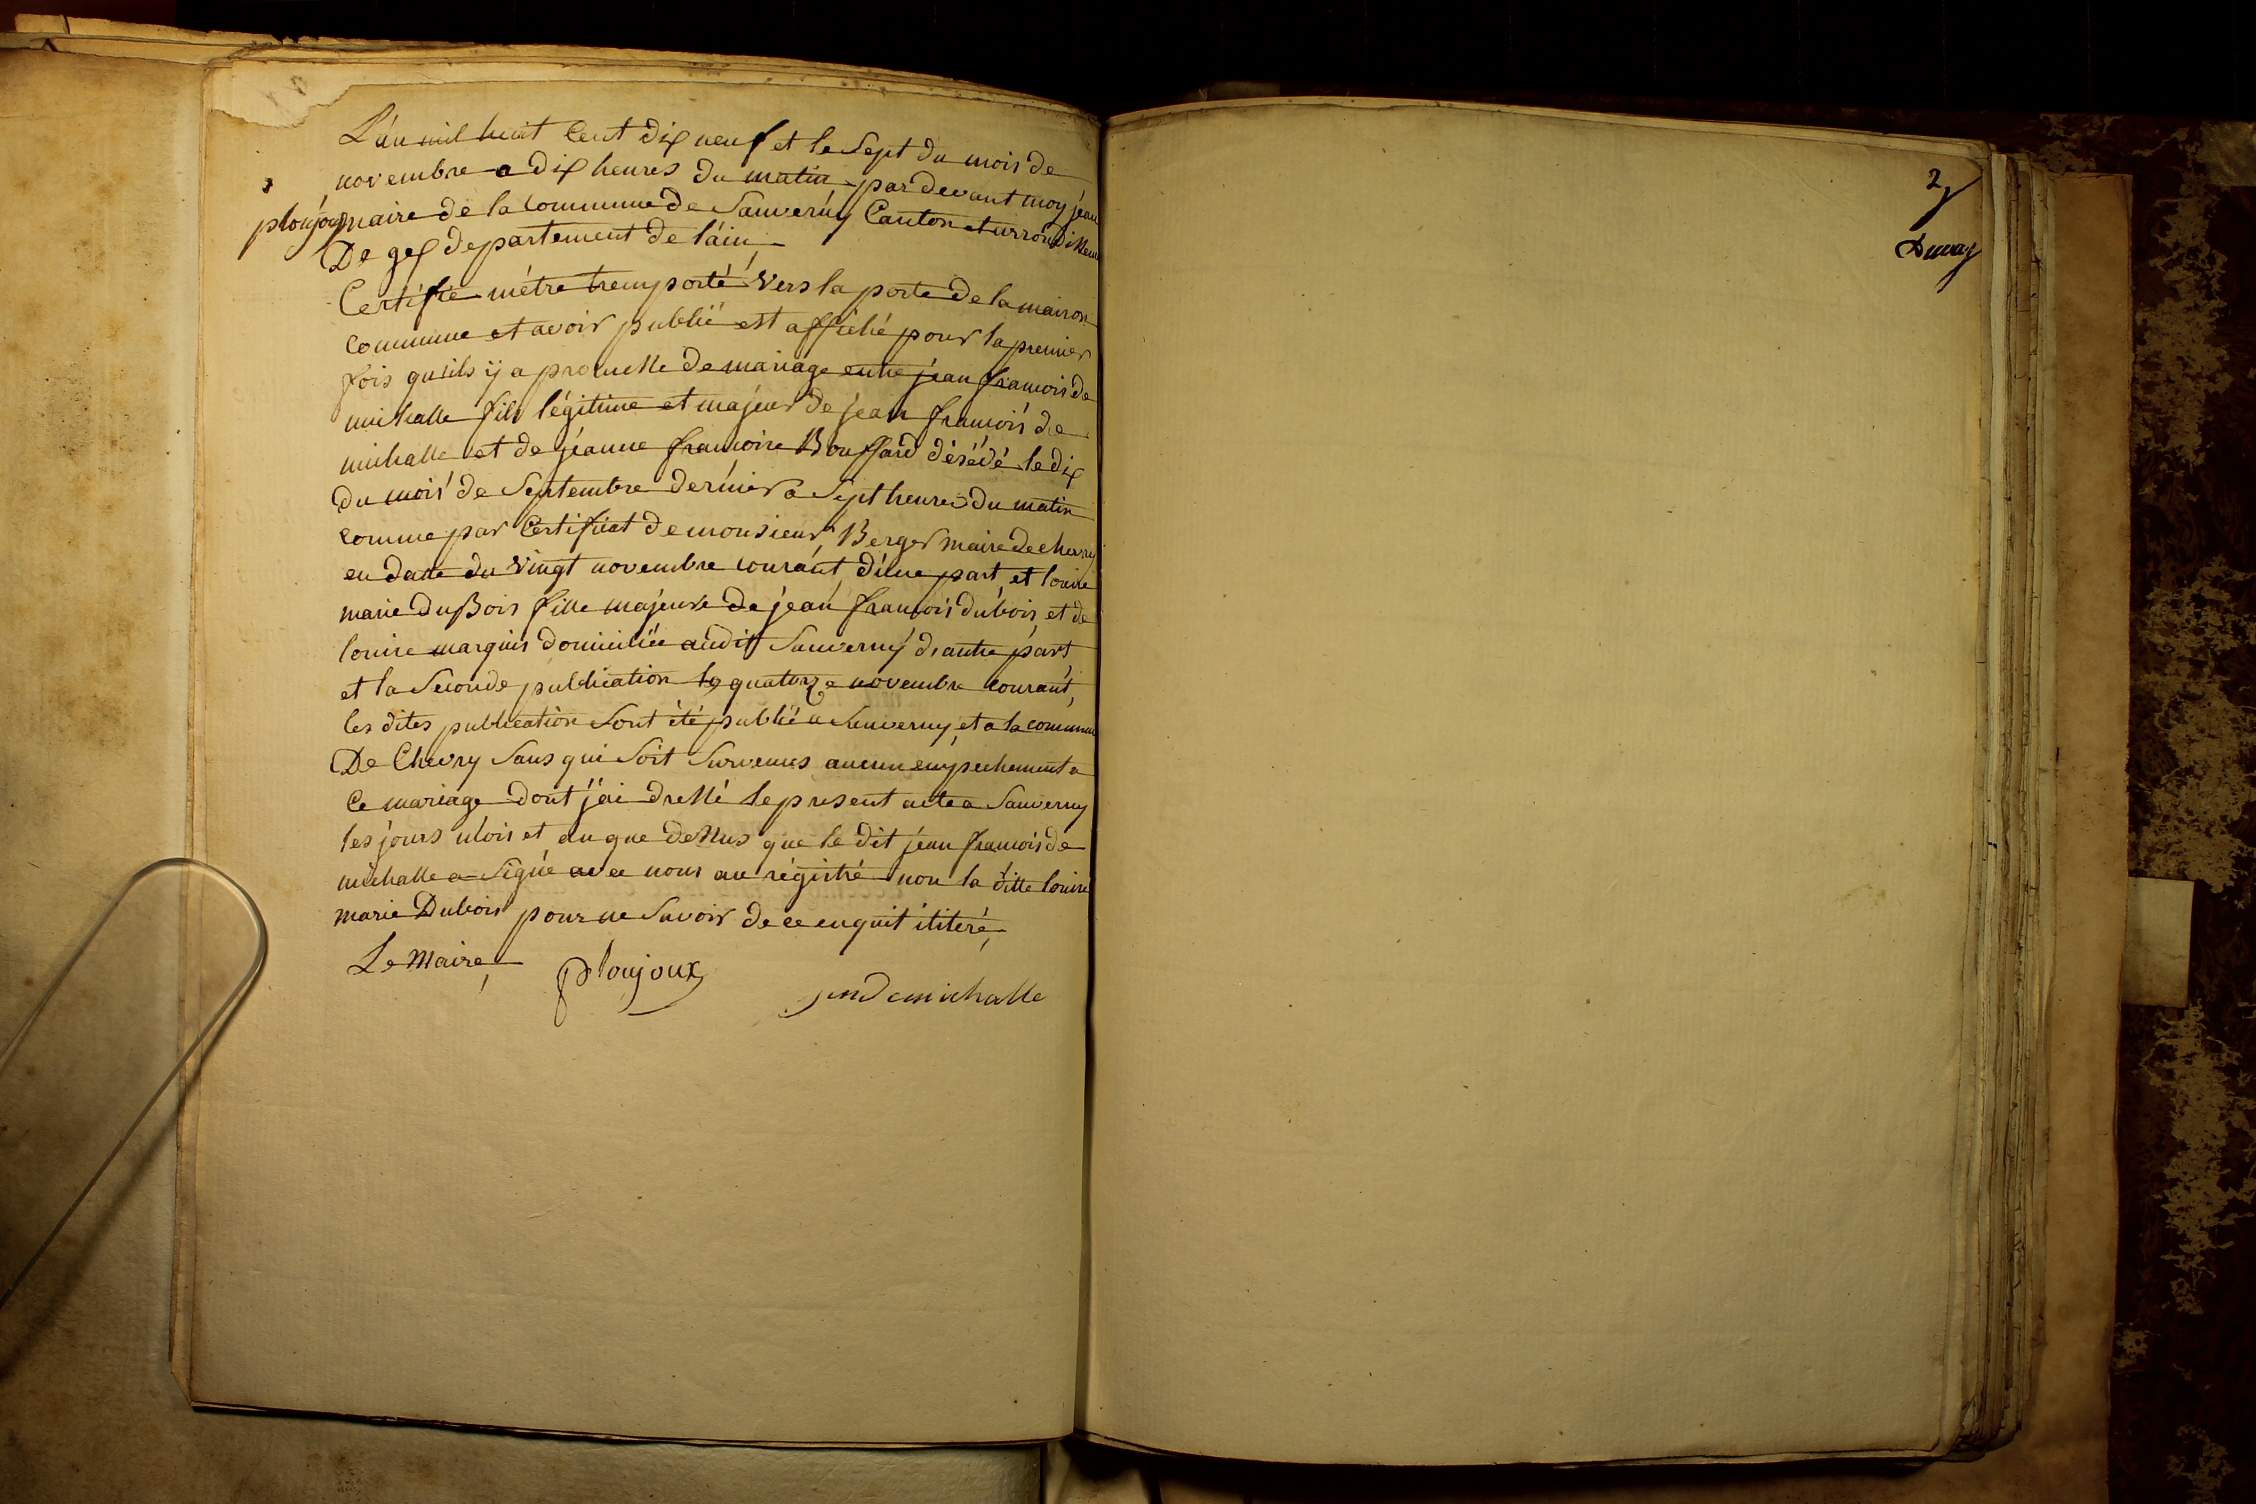 L'an mil huit Cent dix neuf et le Sept du mois de
novembre a dix heures du matin par devant moy jean
ploujoux maire de la commune de Sauverny Canton et arrondissem
De gex departement de l'ain
Certifie métre tremporté vers la porte de la maison
commune et avoir publié est affiché pour la premier
fois quils ij a promesse de mariage entre jean francois de
michalle fils légitime et majeur de jean francois de
michalle et de jeanne francoise Bouffard désédé le dix
du mois de Septembre dernier a Sept heures du matin
comme par Certificat de monsieur Berger maire de chevry
en date du vingt novembre courant d'une part et louise
marie DuBois fille majeure de jean francois dubois et de
louise marquis domiciliée audit Sauverny d'autre part
et la Seconde publication le quatorze novembre courant,
les dites publication Sont été publié a Sauverny et a la commune
De Chevry Sans qui Soit Survenus aucun empechement a
Ce mariage dont j'ai dressé le present acte a Sauverny
les jours mois et an que dessus que le dit jean francois de
michalle a Signé avec nous au régistre non la ditte louise
marie Dubois pour ne Savoir de ce enquit
Le Maire, ploujoux
demichalle
2